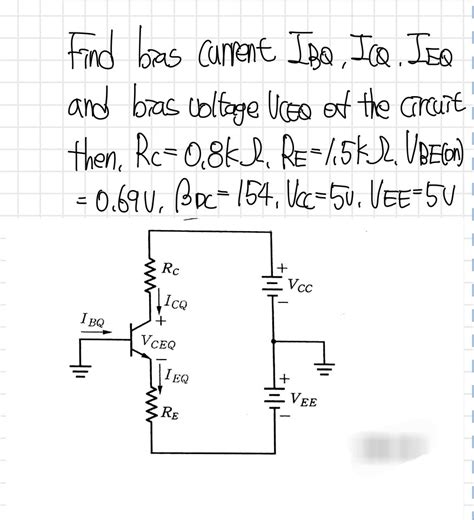 Find bias current IBQ, ICQ, IEQ
and bias voltage VCEQ of the circuit
then, RC=0.8kΩ, RE=1.5kΩ, VBE(on)
=0.69V, βDC=154, VCC=5V, VEE=5V
RC
+
VCC
ICQ
−
IBQ
+
VCEQ
−
IEQ
+
VEE
RE
−